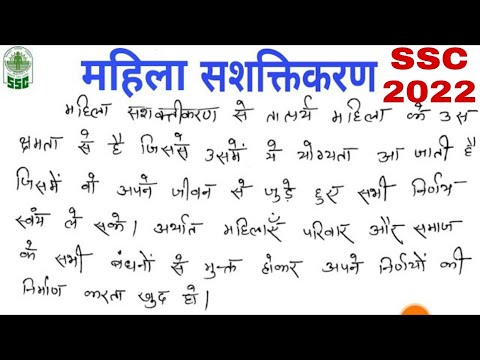 SSC
महिला सशक्तिकरण
SSC
2022
महिला सशक्तीकरण से तात्पर्य महिला की उस
क्षमता से है जिससे उसमें ये योग्यता आ जाती है
जिसमें वो अपने जीवन से जुड़े हुए सभी निर्णय
स्वंय ले सके। अर्थात महिलाएँ परिवार और समाज
के सभी बंधनों से मुक्त होकर अपने निर्णयों की
निर्माण करता खुद हो।